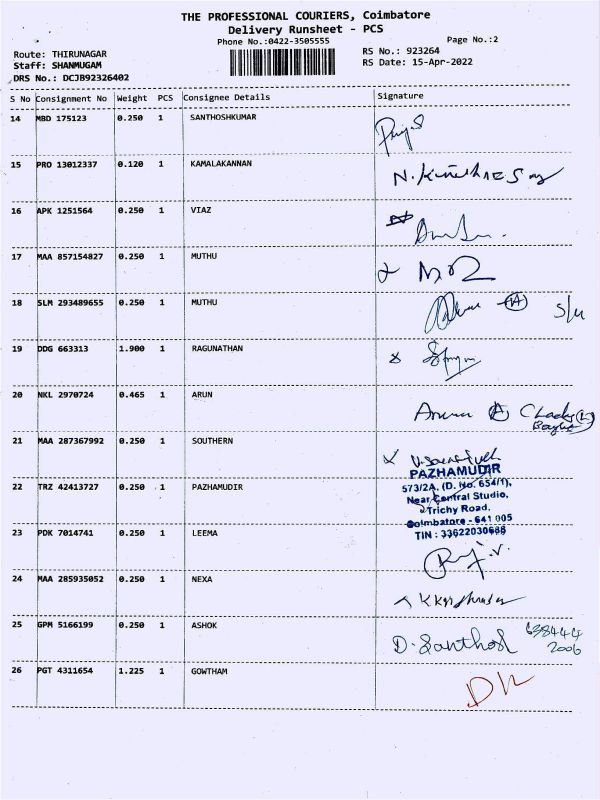 THE PROFESSIONAL COURIERS, Coimbatore
Delivery Runsheet - PCS
Phone No.:0422-3505555
Page No.:2
Route: THIRUNAGAR
RS No.: 923264
Staff: SHANMUGAM
RS Date: 15-Apr-2022
DRS No.: DCJB92326402
S No Consignment No Weight PCS Consignee Details Signature
14 MBD 175123 0.250 1 SANTHOSHKUMAR
15 PRO 13012337 0.120 1 KAMALAKANNAN
16 APK 1251564 0.250 1 VIAZ
17 MAA 857154827 0.250 1 MUTHU
18 SLM 293489655 0.250 1 MUTHU
19 DDG 663313 1.900 1 RAGUNATHAN
20 NKL 2970724 0.465 1 ARUN
21 MAA 287367992 0.250 1 SOUTHERN
22 TRZ 42413727 0.250 1 PAZHAMUDIR
PAZHAMUDIR
573/2A, (D. No. 654/1),
Near Central Studio,
Trichy Road,
Coimbatore - 641 005
TIN : 33622030688
23 PDK 7014741 0.250 1 LEEMA
24 MAA 285935052 0.250 1 NEXA
25 GPM 5166199 0.250 1 ASHOK D. Santhosh
26 PGT 4311654 1.225 1 GOWTHAM